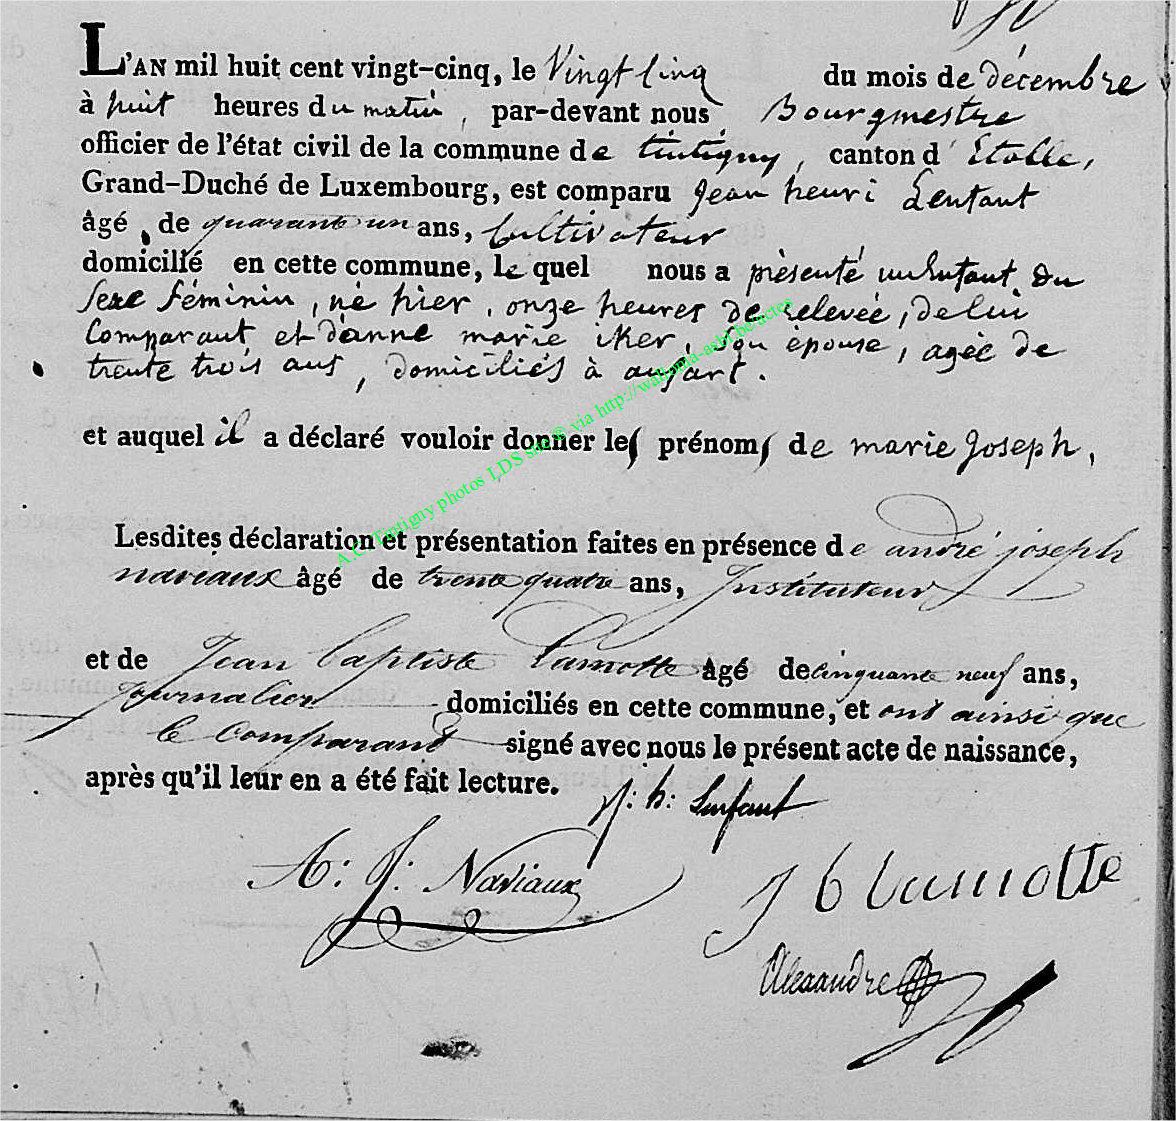 L'AN mil huit cent vingt-cinq, le Vingt Cinq du mois de décembre
à huit heures du matin, par-devant nous Bourgmestre
officier de l'état civil de la commune de tintigny, canton d'Etalle,
Grand-Duché de Luxembourg, est comparu Jean henri Lenfant
âgé de quarante un ans, Cultivateur
domicilié en cette commune, le quel nous a présenté un Enfant du
Sexe féminin, né hier, onze heures de relevée, de lui
Comparant et d'anne marie iker, Son épouse, agée de
trente trois ans, domiciliés à ansart.
et auquel il a déclaré vouloir donner les prénoms de marie Joseph,
Lesdites déclaration et présentation faites en présence de andré joseph
naviaux âgé de trente quatre ans, Instituteur
et de Jean baptiste Lamotte âgé de cinquante neuf ans,
journalier domiciliés en cette commune, et ont ainsi que
le Comparant signé avec nous le présent acte de naissance,
après qu'il leur en a été fait lecture.
J: h: Lenfant
A: J: Naviaux
J b lamotte
Alexandre
A.C. Tintigny photos LDS site® via http://wallonia-asbl.be/actes